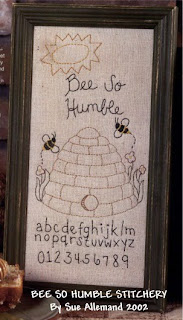 Bee So
Humble
abcdefghijklm
nopqrstuvwxyz
0123456789
BEE SO HUMBLE STITCHERY
By Sue Allemand 2002